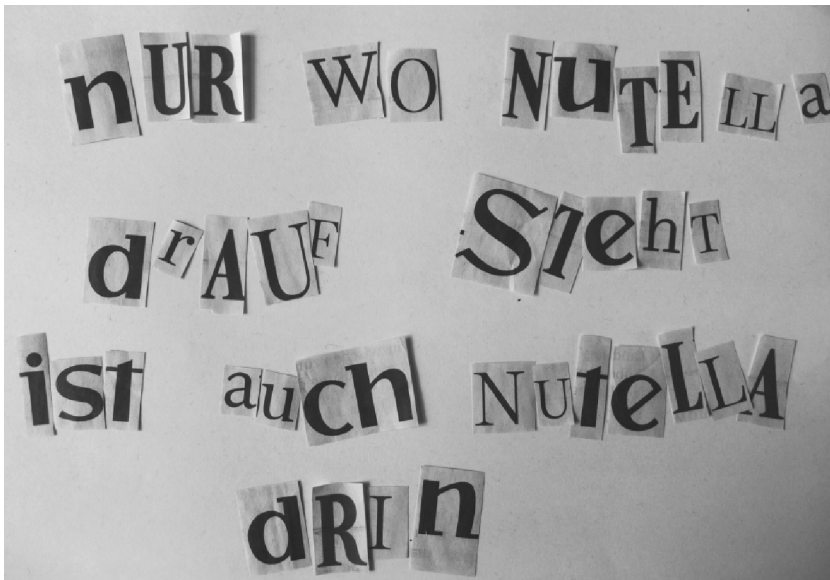 nUR WO NuTELLa
drAUF STehT
ist auch NUteLLA
dRIn